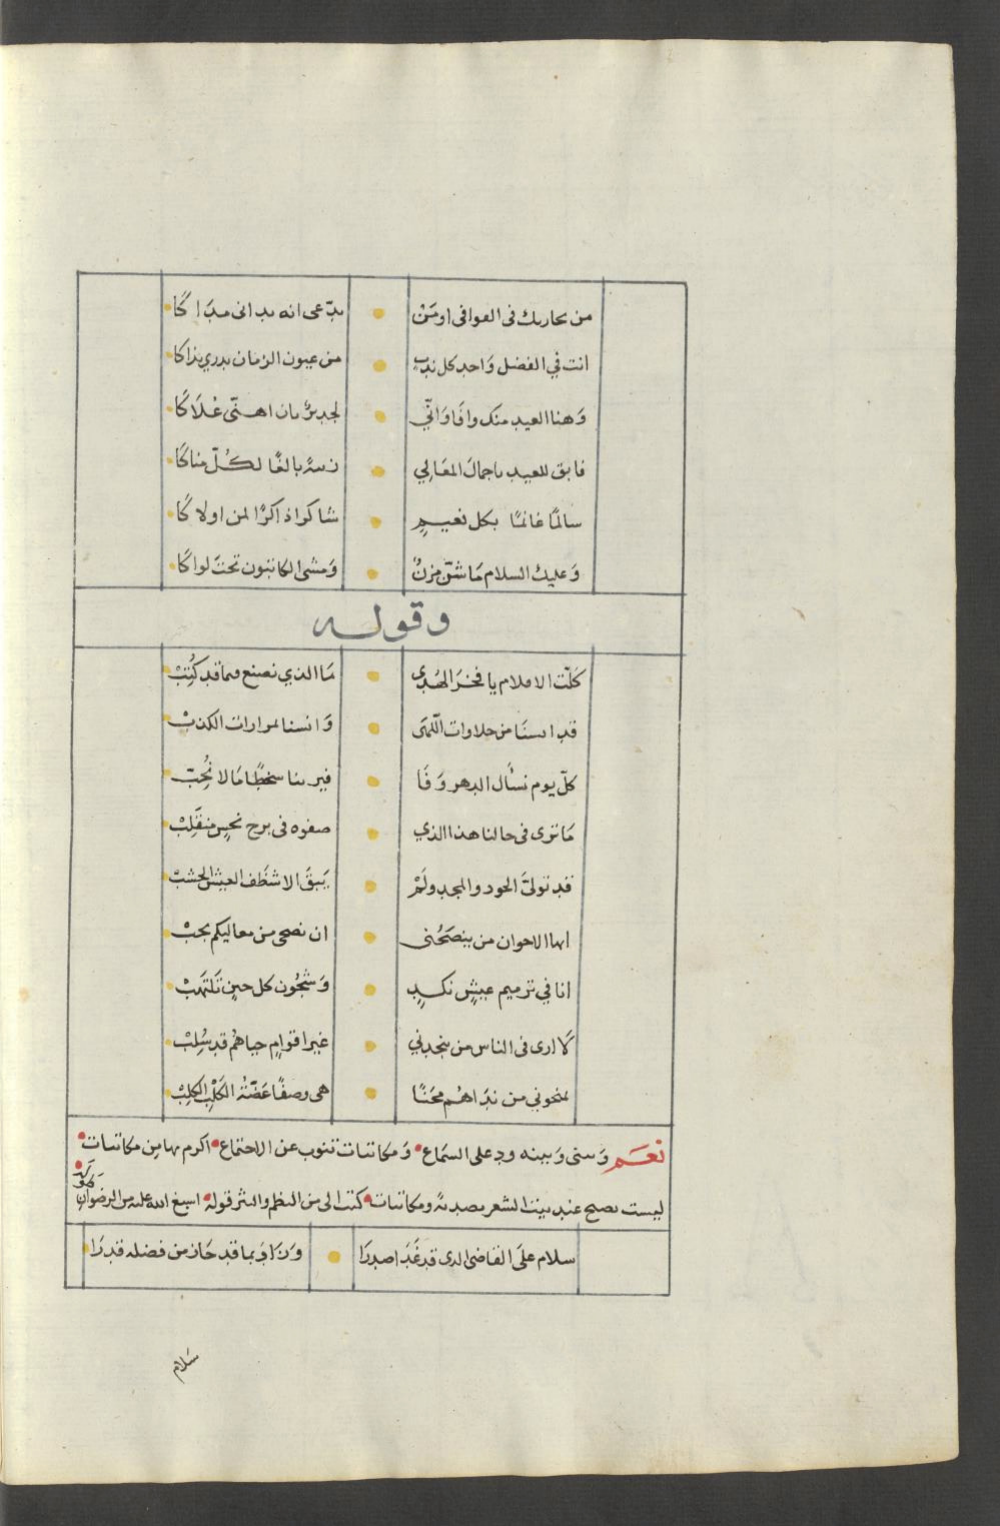 من يجاريك في القوافي او من • يدّعي انه يداني مدَاكَا
انت في الفضل وَاحد كل ندب • من عيون الزمان يدري بذاكا
وَهنا العيد منك وافَا وَانّي • لجديرٌ بان اهنّي عُلَاكَا
فابق للعيد ياجمالَ المعَالِي • بالغًا لكُلّ مناكَا
سالمًا غانمًا بكل نعيمٍ • شاكرا ذاكرًا لمن اولاكَا
وَعليك السلام مَا شنّ مزنٌ • وَمشى الكاتبون تحتَ لواكَا
وقوله
كلّت الاقلام يا فخرَ الهُدى • مَا الذي نصنع مما قد كُتِبْ
قد ايسنَا من حلاوات اللّمَى • وَانسنا لمرارات الكذبْ
كلّ يوم نسأل الدهر وَفَا • فيرينا سخطًا مَالا نُحِبّ
مَا ترى في حالنا هذا الذي • صفوه في برج نحسٍ منقَلِبْ
قد تولىَّ الجود والمجد ولَمْ • يَبقَ الا شظَف العيش الخشبْ
ايها الاخوان من ينصَحُني • ان نصحي من معاليكم يجبْ
انا في ترميم عيشٍ نكدٍ • وَشجُون كل حينٍ تَلتَهبْ
لَا ارى في الناس من ينجدني • غير اقوامٍ حباهُم قد سُلِبْ
يمنحوني من ندَاهُم محَنًا • هي وصفًا عَضّتُه الكَلْبِ الكَلِبْ
نعَم وَبيني وَبينه ود على السمَاع • وَمكاتبات تنوب عن الاجتماع • اكرم بها من مكاتبات •
ليست تصبح عند بيت الشعر تصدية ومكاتبات • كتب الى من النظم والنثر قوله • اسبغ الله عليه من الرضوان
سلام علَى القاضي الذي قد غَدَا صدرَا • وَزادَ بما قد حَاز من فضله قدرَا
سَلام